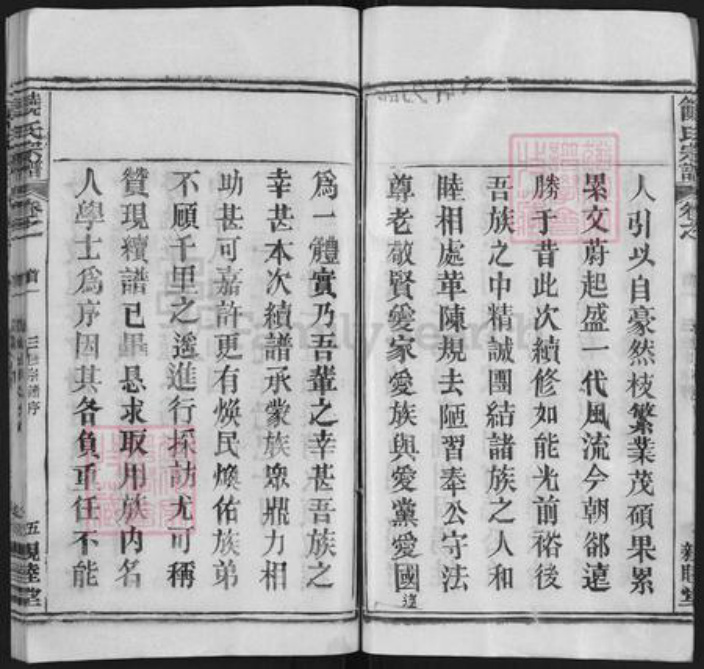 人引以自豪然枝繁葉茂碩果累
累文蔚起盛一代風流今朝郤遠
勝于昔此次續修如能光前裕後
吾族之中精誠團結諸族之人和
睦相處革陳規去陋習奉公守法
尊老敬賢愛家愛族與愛黨愛國遂
為一體實乃吾輩之幸甚吾族之
幸甚本次續譜承蒙族眾鼎力相
助甚可嘉許更有煥民煥佑族弟
不顧千里之遥進行採訪尤可稱
贊現續譜已畢恳求取用族内名
人學士為序因其各負重任不能
氏宗譜
卷之一
首一
三
宗譜序
五
親睦堂